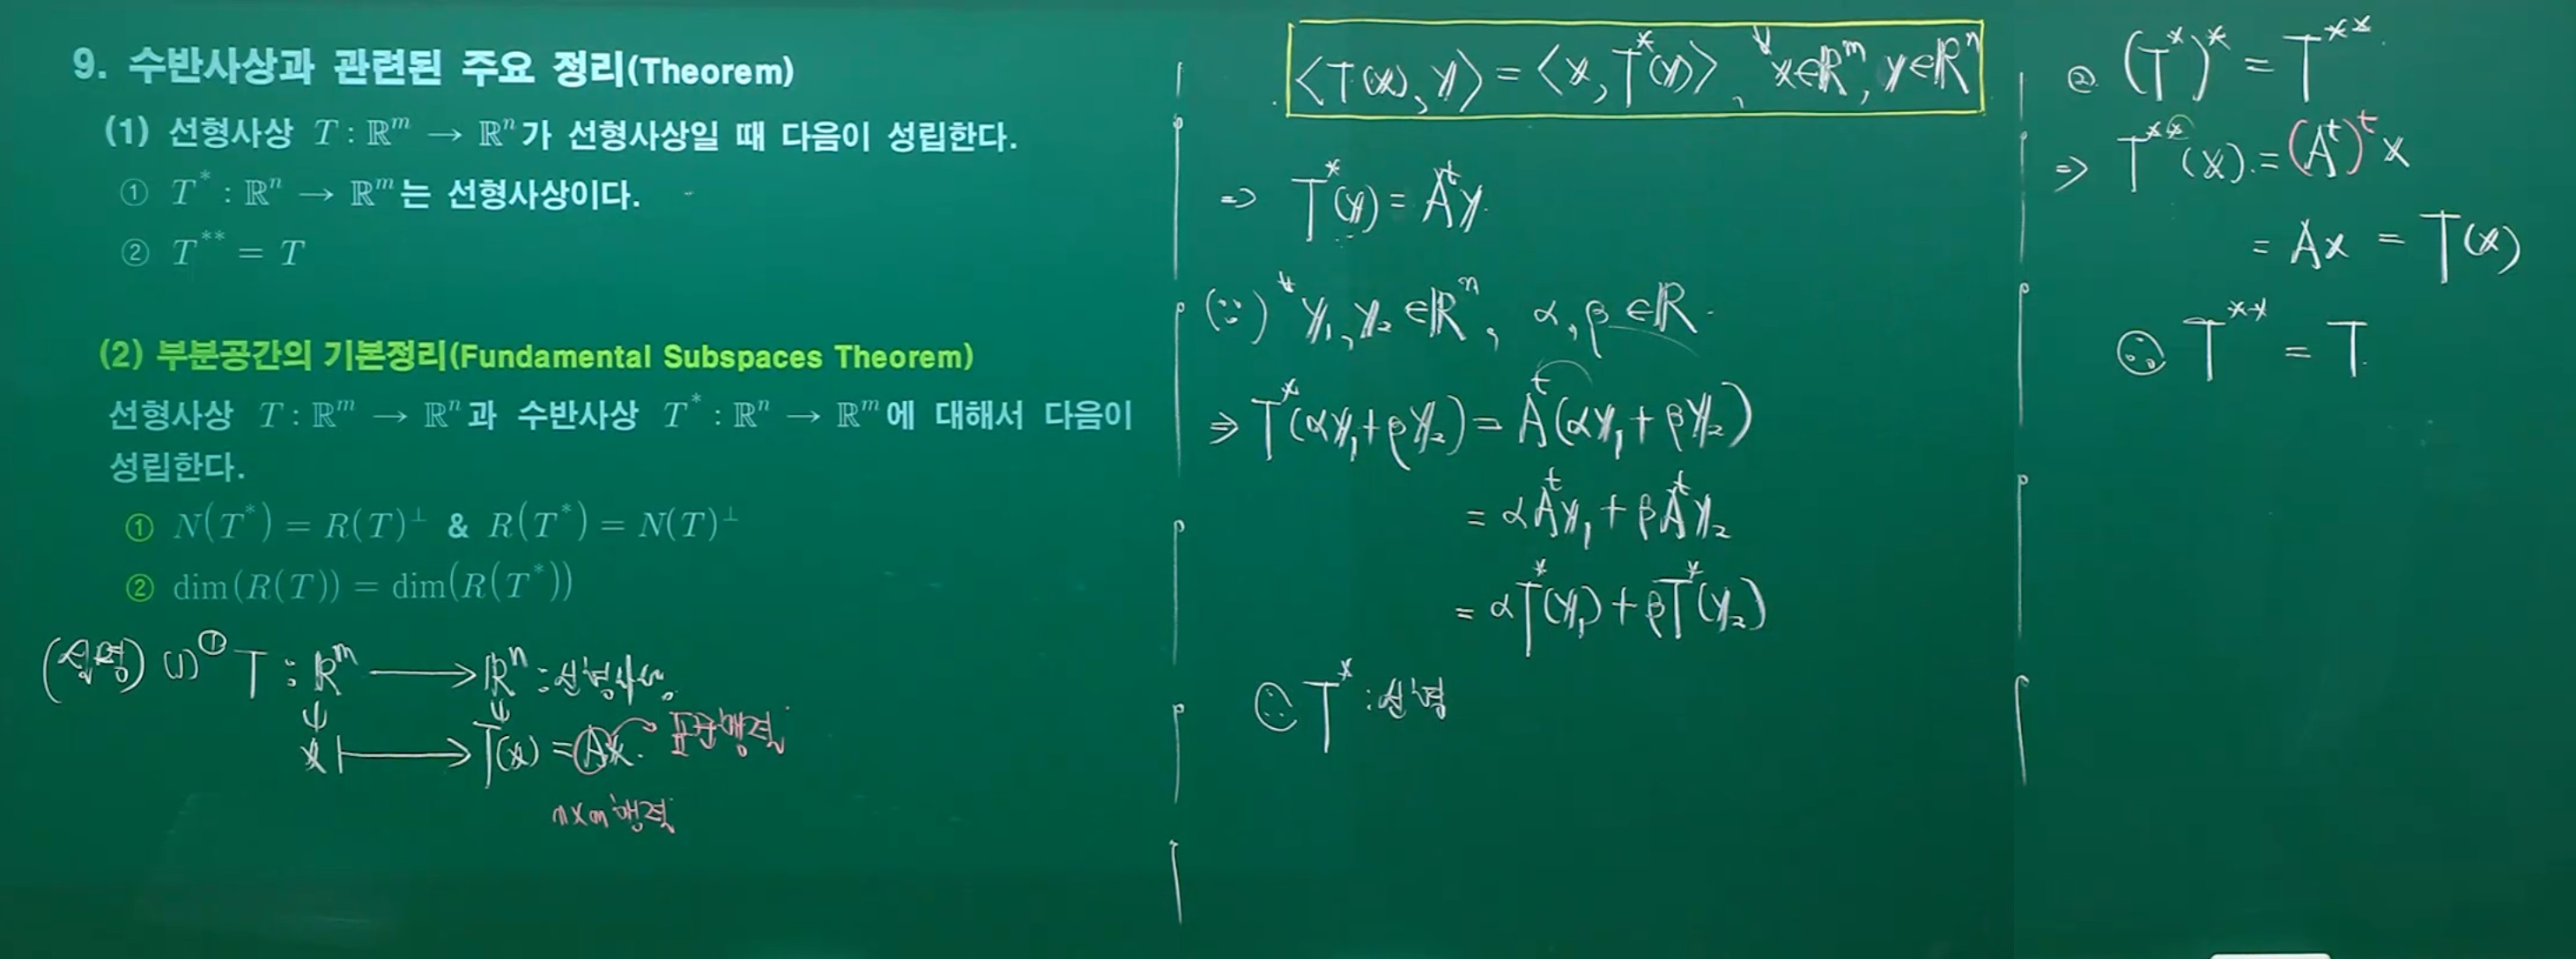 9. 수반사상과 관련된 주요 정리(Theorem)
(1) 선형사상 T : ℝᵐ → ℝⁿ가 선형사상일 때 다음이 성립한다.
① T* : ℝⁿ → ℝᵐ는 선형사상이다.
② T** = T
(2) 부분공간의 기본정리(Fundamental Subspaces Theorem)
선형사상 T : ℝᵐ → ℝⁿ과 수반사상 T* : ℝⁿ → ℝᵐ에 대해서 다음이
성립한다.
① N(T*) = R(T)^⊥ & R(T*) = N(T)^⊥
② dim(R(T)) = dim(R(T*))
(설명) (1) ① T : ℝᵐ → ℝⁿ : 선형사상
x ↦ T(x) = Ax. 표준행렬
n×m 행렬
<T(x), y> = <x, T*(y)>, ∀x∈ℝᵐ, y∈ℝⁿ
⇒ T*(y) = Aᵗy.
(∵) ∀y₁, y₂ ∈ℝⁿ, α, β ∈ℝ.
⇒ T*(αy₁+βy₂) = Aᵗ(αy₁+βy₂)
= αAᵗy₁ + βAᵗy₂
= αT*(y₁) + βT*(y₂)
∴ T* : 선형
② (T*)* = T**.
⇒ T**(x) = (Aᵗ)ᵗx
= Ax = T(x)
∴ T** = T.